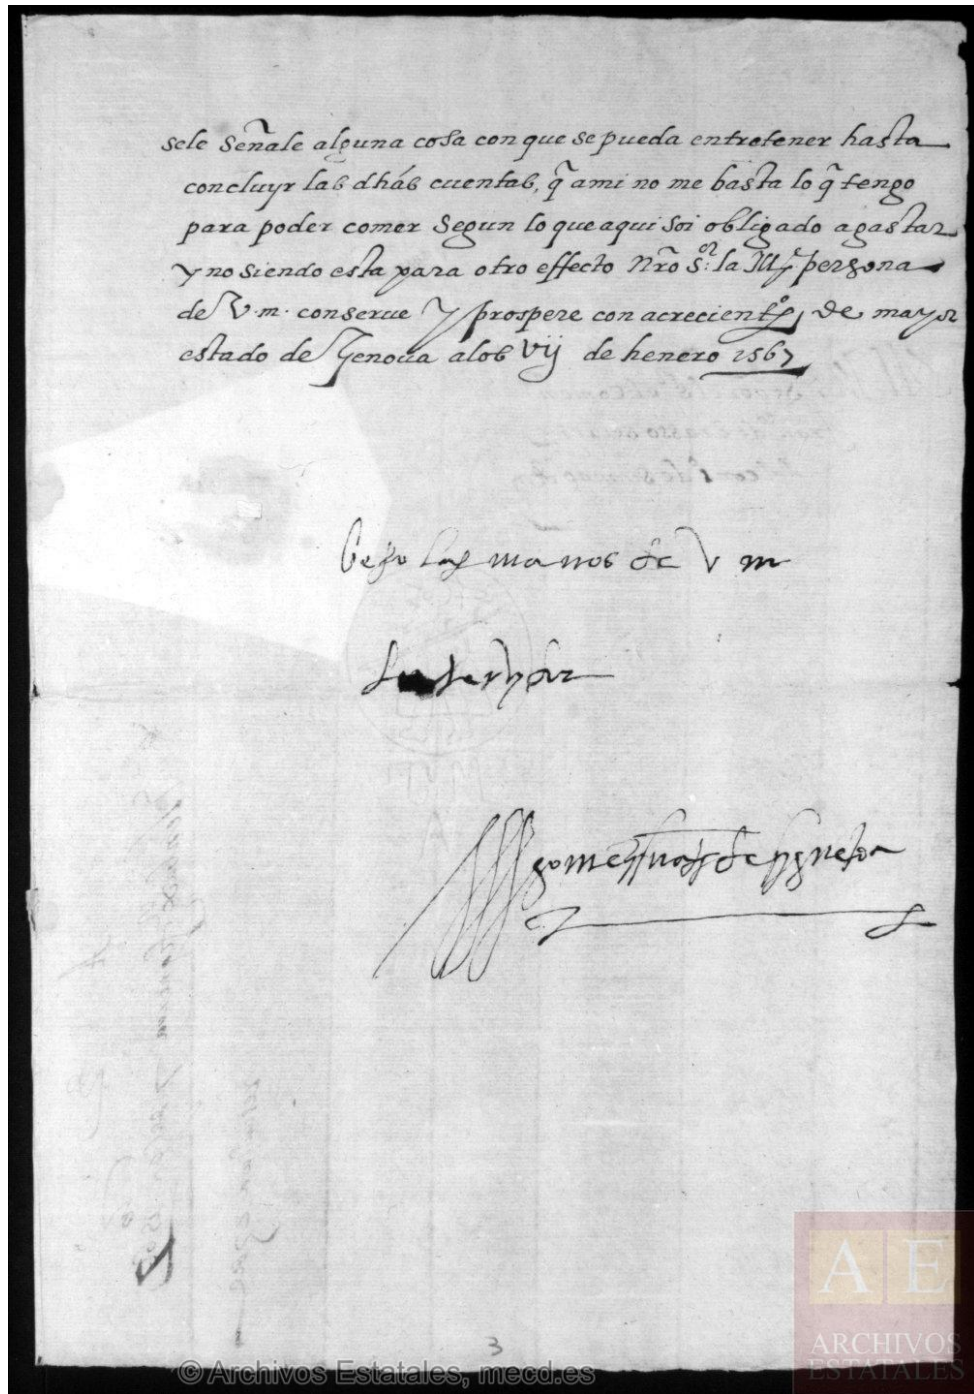 sele señale alguna cosa con que se pueda entretener hasta
concluyr las dhas cuentas, q̃ a mi no me basta lo q̃ tengo
para poder comer segun lo que aqui soi obligado a gastar
y no siendo esta para otro effecto Nr̃o S.or la Ill.e persona
de V.m. conserue y prospere con acrecient.o de mayor
estado de Genoua a los vij de henero 1567
beso las manos de V m
su seruydor
gomez suarez de figueroa
3
© Archivos Estatales, mecd.es
AE
ARCHIVOS
ESTATALES